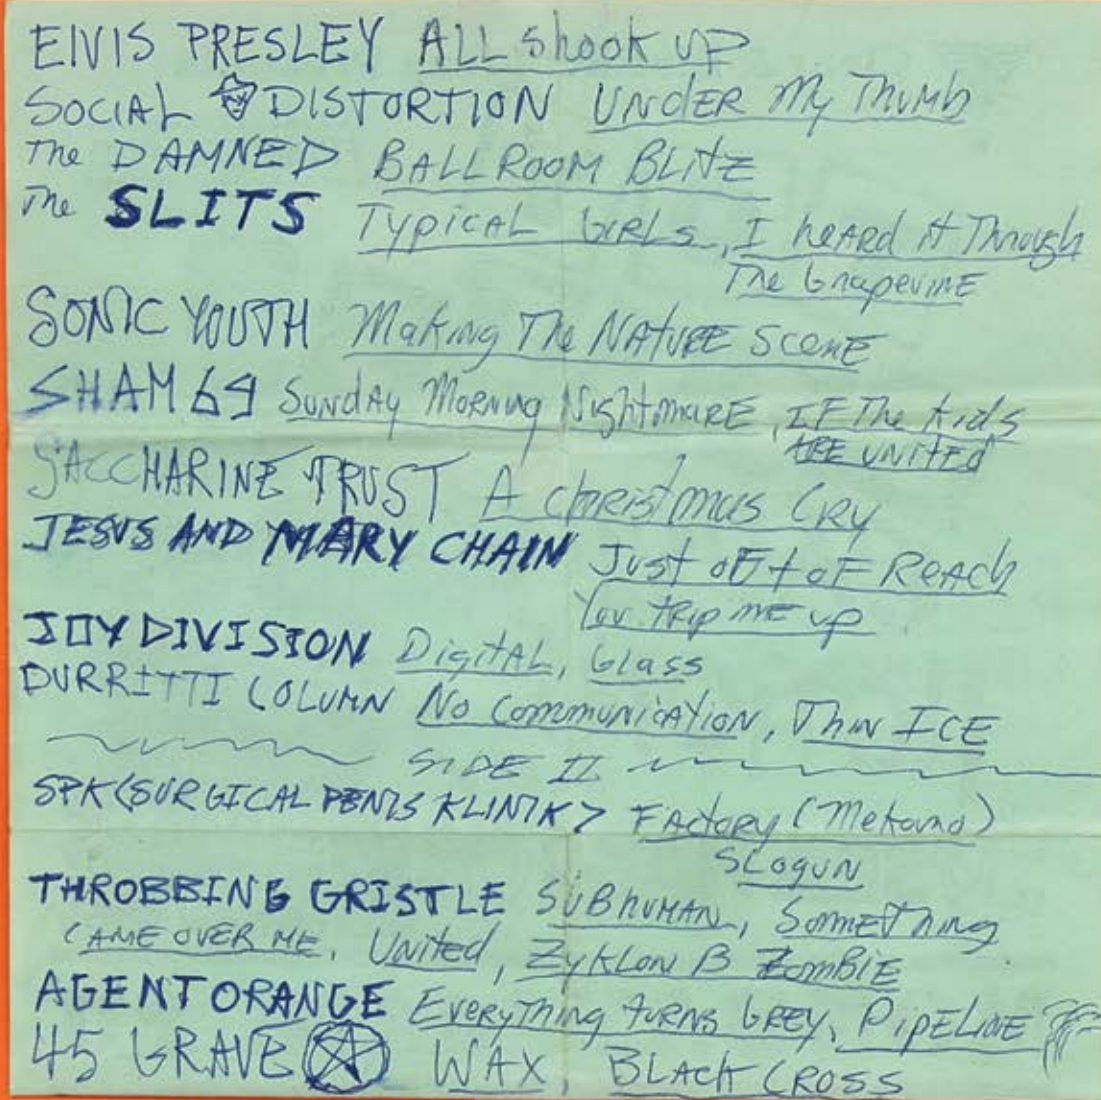 ElVIS PRESLEY ALL Shook UP
SOCIAL DISTORTION UNdER My Thumb
The DAMNED BALLROOM BLITZ
The SLITS TypicAL GIRLs, I heARd it Through
The GrapevinE
SONIC YOUTH Making The NATURE SceneE
SHAM 69 SundAy Morning NightmaRE, IF The kids
ARE UNITEd
SACCHARINE TRUST A christmas CRy
JESUS AND MARY CHAIN Just oF+ oF REAch
You trip mE up
JOY DIVISION DigitAL, Glass
DURRITTI COLUMN No CommuNicATioN, Thin ICE
SIDE II
SPK <SURGICAL PENIS KLINIK> FActory (Metound)
SLOgUN
THROBBING GRISTLE SUBhUMAN, SOMETHing
CAME OVER ME, United, ZyKLON B ZomBiE
AGENT ORANGE EvERything turns GREY, PipELiNE
45 GRAVE WAX, BLACK CROSS